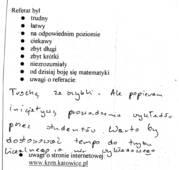 Referat był
● trudny
● łatwy
● na odpowiednim poziomie
● ciekawy
● zbyt długi
● zbyt krótki
● niezrozumiały
● od dzisiaj boję się matematyki
● uwagi o referacie
Trochę za szybki. Ale popieram
inicjatywę prowadzenia wykładów
przez studentów. Warto by
dostosować tempo do trybu
● uwagi o stronie internetowej
www.knm.katowice.pl